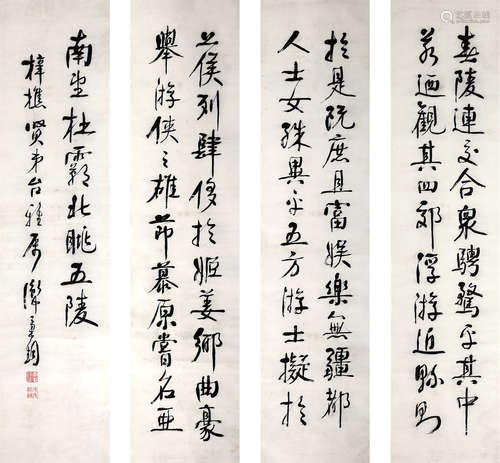 春陵連交合衆騁騖乎其中
若迺觀其四郊浮游近縣則
於是既庶且富娛樂無疆都
人士女殊異乎五方游士擬於
公侯列肆侈於姬姜鄉曲豪
舉游俠之雄節慕原嘗名亞
南望杜霸北眺五陵
樟樵賢弟台雅屬